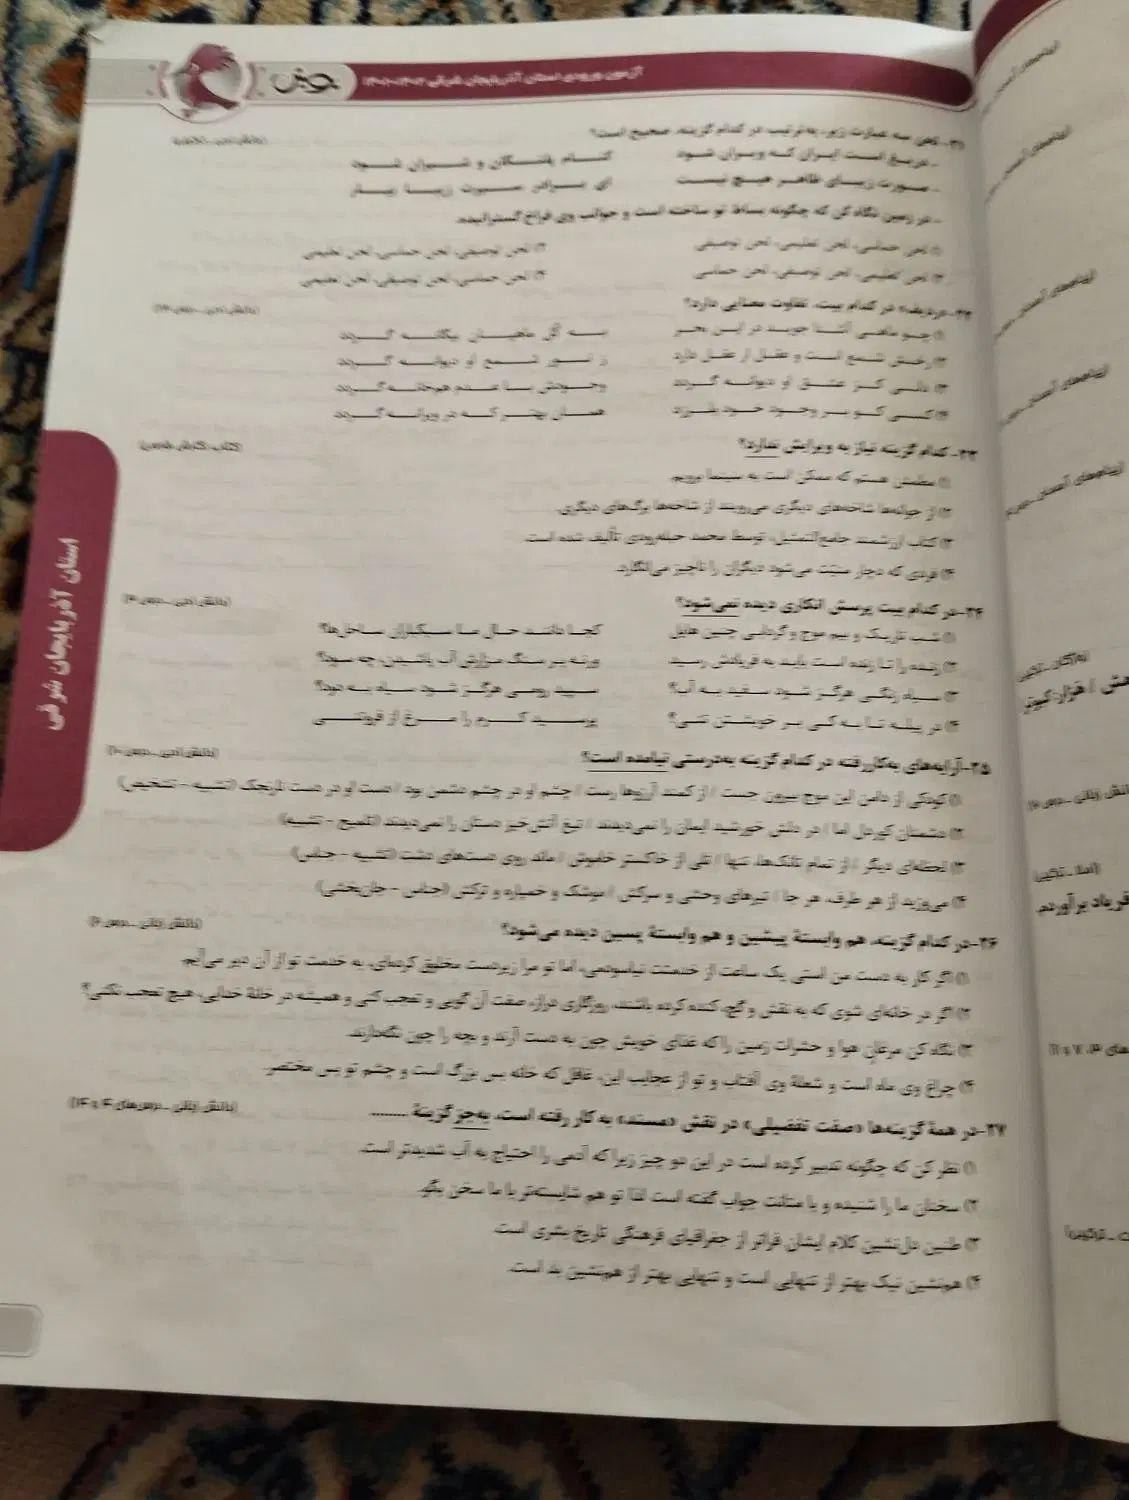 آزمون ورودی استان آذربایجان شرقی ۱۴۰۲-۱۴۰۱
۲۱- لحن سه عبارت زیر، به‌ترتیب در کدام گزینه، صحیح است؟
- دریغ است ایران که ویران شود کنام پلنگان و شیران شود
- صورت زیبای ظاهر هیچ نیست ای برادر سیرت زیبا بیار
- در زمین نگاه کن که چگونه بساط تو ساخته است و جوانب وی فراخ گسترانیده.
۱) لحن حماسی، لحن تعلیمی، لحن توصیفی ۲) لحن توصیفی، لحن حماسی، لحن تعلیمی
۳) لحن تعلیمی، لحن توصیفی، لحن حماسی ۴) لحن حماسی، لحن توصیفی، لحن تعلیمی
۲۲- «ردیف» در کدام بیت، تفاوت معنایی دارد؟ (دانش ادبی -
۱) چو ماهی آشنا جوید در این بحر به کُل ماهیان بیگانه گردد
۲) رخش شمع است و عقل ار عقل دارد ز نور شمع او دیوانه گردد
۳) دلی کز عشق او دیوانه گردد وجودش با عدم همخانه گردد
۴) کسی کو بر وجود خود بلرزد همان بهتر که در ویرانه گردد
۲۳- کدام گزینه نیاز به ویرایش ندارد؟
۱) مطمئن هستم که ممکن است به سینما برویم.
۲) از جوانه‌ها شاخه‌های دیگری می‌رویند از شاخه‌ها برگ‌های دیگری.
۳) کتاب ارزشمند جامع‌التمثیل، توسط محمد حبله‌رودی تألیف شده است.
۴) فردی که دچار منیّت می‌شود دیگران را ناچیز می‌انگارد.
۲۴- در کدام بیت پرسش انکاری دیده نمی‌شود؟
۱) شب تاریک و بیم موج و گردابی چنین هایل کجا دانند حال ما سبکباران ساحل‌ها؟
۲) زنده را تا زنده است باید به فریادش رسید ورنه بر سنگ مزارش آب پاشیدن، چه سود؟
۳) سیاه زنگی هرگز شود سفید به آب؟ سپید رومی هرگز شود سیاه به دود؟
۴) در پیله تا به کی بر خویشتن تنی؟ پرسید کرم را مرغ از فروتنی
۲۵- آرایه‌های به‌کاررفته در کدام گزینه به‌درستی نیامده است؟ (دانش ادبی - درس ۱۰)
۱) کودکی از دامن این موج بیرون جست / از کمند آرزوها رست / چشم او در چشم دشمن بود / دست او در دست نارنجک (تشبیه - تشخیص)
۲) دشمنان کوردل اما / در دلش خورشید ایمان را نمی‌دیدند / تیغ آتش‌خیز دستان را نمی‌دیدند (تلمیح - تشبیه)
۳) لحظه‌ای دیگر / از تمام تانک‌ها، تنها / تلی از خاکستر خاموش / ماند روی دست‌های دشت (تشبیه - جناس)
۴) می‌وزید از هر طرف، هر جا / تیرهای وحشی و سرکش / موشک و خمپاره و ترکش (جناس - جان‌بخشی)
۲۶- در کدام گزینه، هم وابستهٔ پیشین و هم وابستهٔ پسین دیده می‌شود؟ (دانش زبانی - درس ۶)
۱) اگر کار به دست من استی یک ساعت از خدمتت نیاسودمی، اما تو مرا زیردست مخلیق کرده‌ای، به خدمت تو از آن دیر می‌آیم.
۲) اگر در خانه‌ای شوی که به نقش و گچ، کنده کرده باشند، روزگاری دراز، صفت آن گویی و تعجب کنی و همیشه در خانهٔ خدایی، هیچ تعجب نکنی؟
۳) نگاه کن مرغان هوا و حشرات زمین را که غذای خویش چون به دست آرند و بچه را چون نگه‌دارند.
۴) چراغ وی ماه است و شعلهٔ وی آفتاب و تو از عجایب این، غافل که خانه بس بزرگ است و چشم تو بس مختصر.
۲۷- در همهٔ گزینه‌ها «صفت تفضیلی» در نقش «مسند» به کار رفته است، به‌جز گزینهٔ ........ (دانش زبانی - درس‌های ۴ و ۱۴)
۱) نظر کن که چگونه تدبیر کرده است در این دو چیز زیرا که آدمی را احتیاج به آب شدیدتر است.
۲) سخنان ما را شنیده و با متانت جواب گفته است لذا تو هم شایسته‌تر با ما سخن بگو.
۳) طنین دل‌نشین کلام ایشان فراتر از جغرافیای فرهنگی تاریخ بشری است.
۴) هم‌نشین نیک بهتر از تنهایی است و تنهایی بهتر از هم‌نشین بد است.
استان آذربایجان شرقی